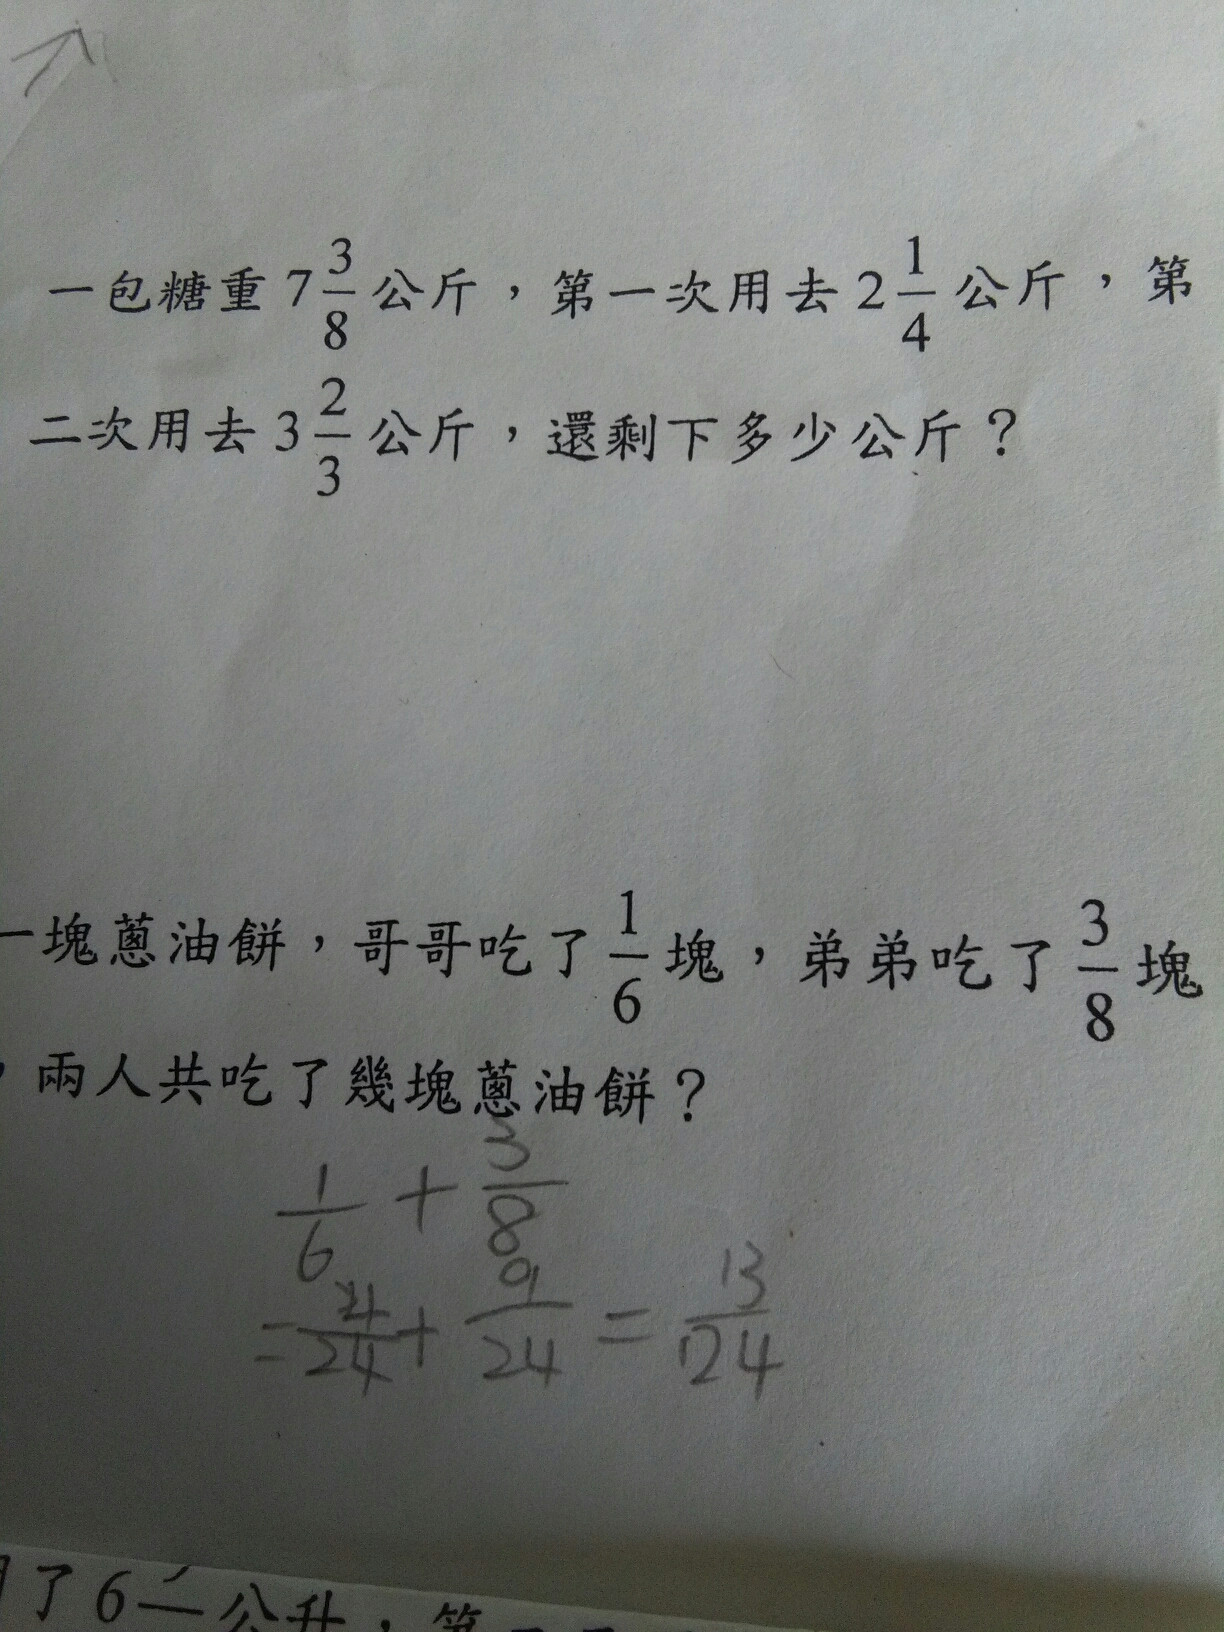 一包糖重 7 3/8 公斤，第一次用去 2 1/4 公斤，第
二次用去 3 2/3 公斤，還剩下多少公斤？
一塊蔥油餅，哥哥吃了 1/6 塊，弟弟吃了 3/8 塊
，兩人共吃了幾塊蔥油餅？
1/6 + 3/8
= 4/24 + 9/24 = 13/24
了 6 公升，第